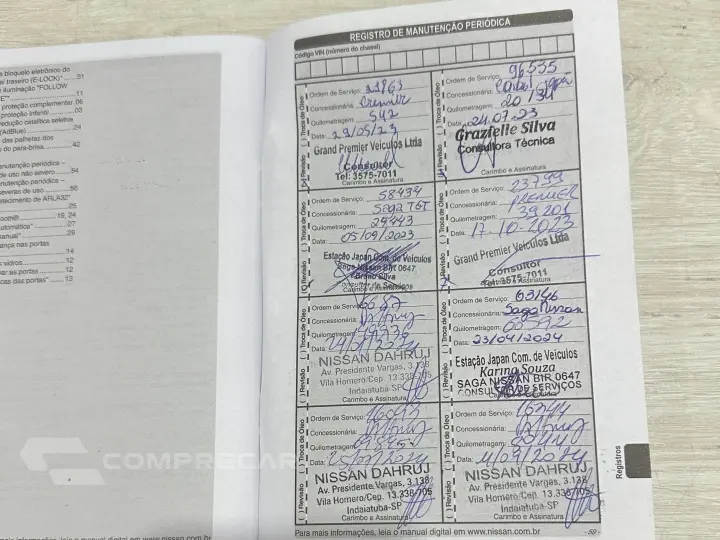 bloqueio eletrônico do
traseiro (E-LOCK)" ......51
iluminação "FOLLOW
11
proteção complementar .06
proteção infantil ......03
redução catalítica seletiva
(AdBlue) ......24
das palhetas dos
do para-brisa ......42
manutenção periódica –
de uso não severo ......54
manutenção periódica –
severas de uso ......56
abastecimento de ARLA32"
......25
......19, 24
automática" ......27
manual" ......29
nas portas
......14
vidros ......12
as portas ......12
das portas" ......13
COMPRECAR
REGISTRO DE MANUTENÇÃO PERIÓDICA
Código VIN (número do chassi)
( ) Revisão ( ) Troca de Óleo
Ordem de Serviço: 22863
Concessionária: Premier
Quilometragem: 542
Data: 29/05/23
Grand Premier Veículos Ltda
Consultor
Tel: 3575-7011
Carimbo e Assinatura
( ) Revisão ( ) Troca de Óleo
Ordem de Serviço: 96535
Concessionária:
Quilometragem: 20
Data: 24.07.23
Grazielle Silva
Consultora Técnica
Carimbo e Assinatura
( ) Revisão ( ) Troca de Óleo
Ordem de Serviço: 58434
Concessionária: Saga T6T
Quilometragem: 29443
Data: 05/09/2023
Estação Japan Com. de Veículos
Saga Nissan BIR 0647
Bruno Silva
Consultor de Serviços
( ) Revisão ( ) Troca de Óleo
Ordem de Serviço: 23799
Concessionária: PREMIER
Quilometragem: 39201
Data: 17-10-2023
Grand Premier Veículos Ltda
Consultor
Tel: 3575-7011
Carimbo e Assinatura
( ) Revisão ( ) Troca de Óleo
Ordem de Serviço:
Concessionária:
Quilometragem:
Data:
NISSAN DAHRUJ
Av. Presidente Vargas, 3.138
Vila Homero/Cep. 13.338-705
Indaiatuba-SP
Carimbo e Assinatura
( ) Revisão ( ) Troca de Óleo
Ordem de Serviço: 63146
Concessionária: Saga Nissan
Quilometragem:
Data: 23/04/2024
Estação Japan Com. de Veículos
Karina Souza
SAGA NISSAN BIR 0647
CONSULTOR DE SERVIÇOS
Carimbo e Assinatura
( ) Revisão ( ) Troca de Óleo
Ordem de Serviço:
Concessionária:
Quilometragem:
Data:
NISSAN DAHRUJ
Av. Presidente Vargas, 3.138
Vila Homero/Cep. 13.338-705
Indaiatuba-SP
Carimbo e Assinatura
( ) Revisão ( ) Troca de Óleo
Ordem de Serviço:
Concessionária:
Quilometragem:
Data: 11/09/2024
NISSAN DAHRUJ
Av. Presidente Vargas, 3.138
Vila Homero/Cep. 13.338-705
Indaiatuba-SP
Carimbo e Assinatura
Registros
Para mais informações, leia o manual digital em www.nissan.com.br
- 59 -
mais informações, leia o manual digital em www.nissan.com.br